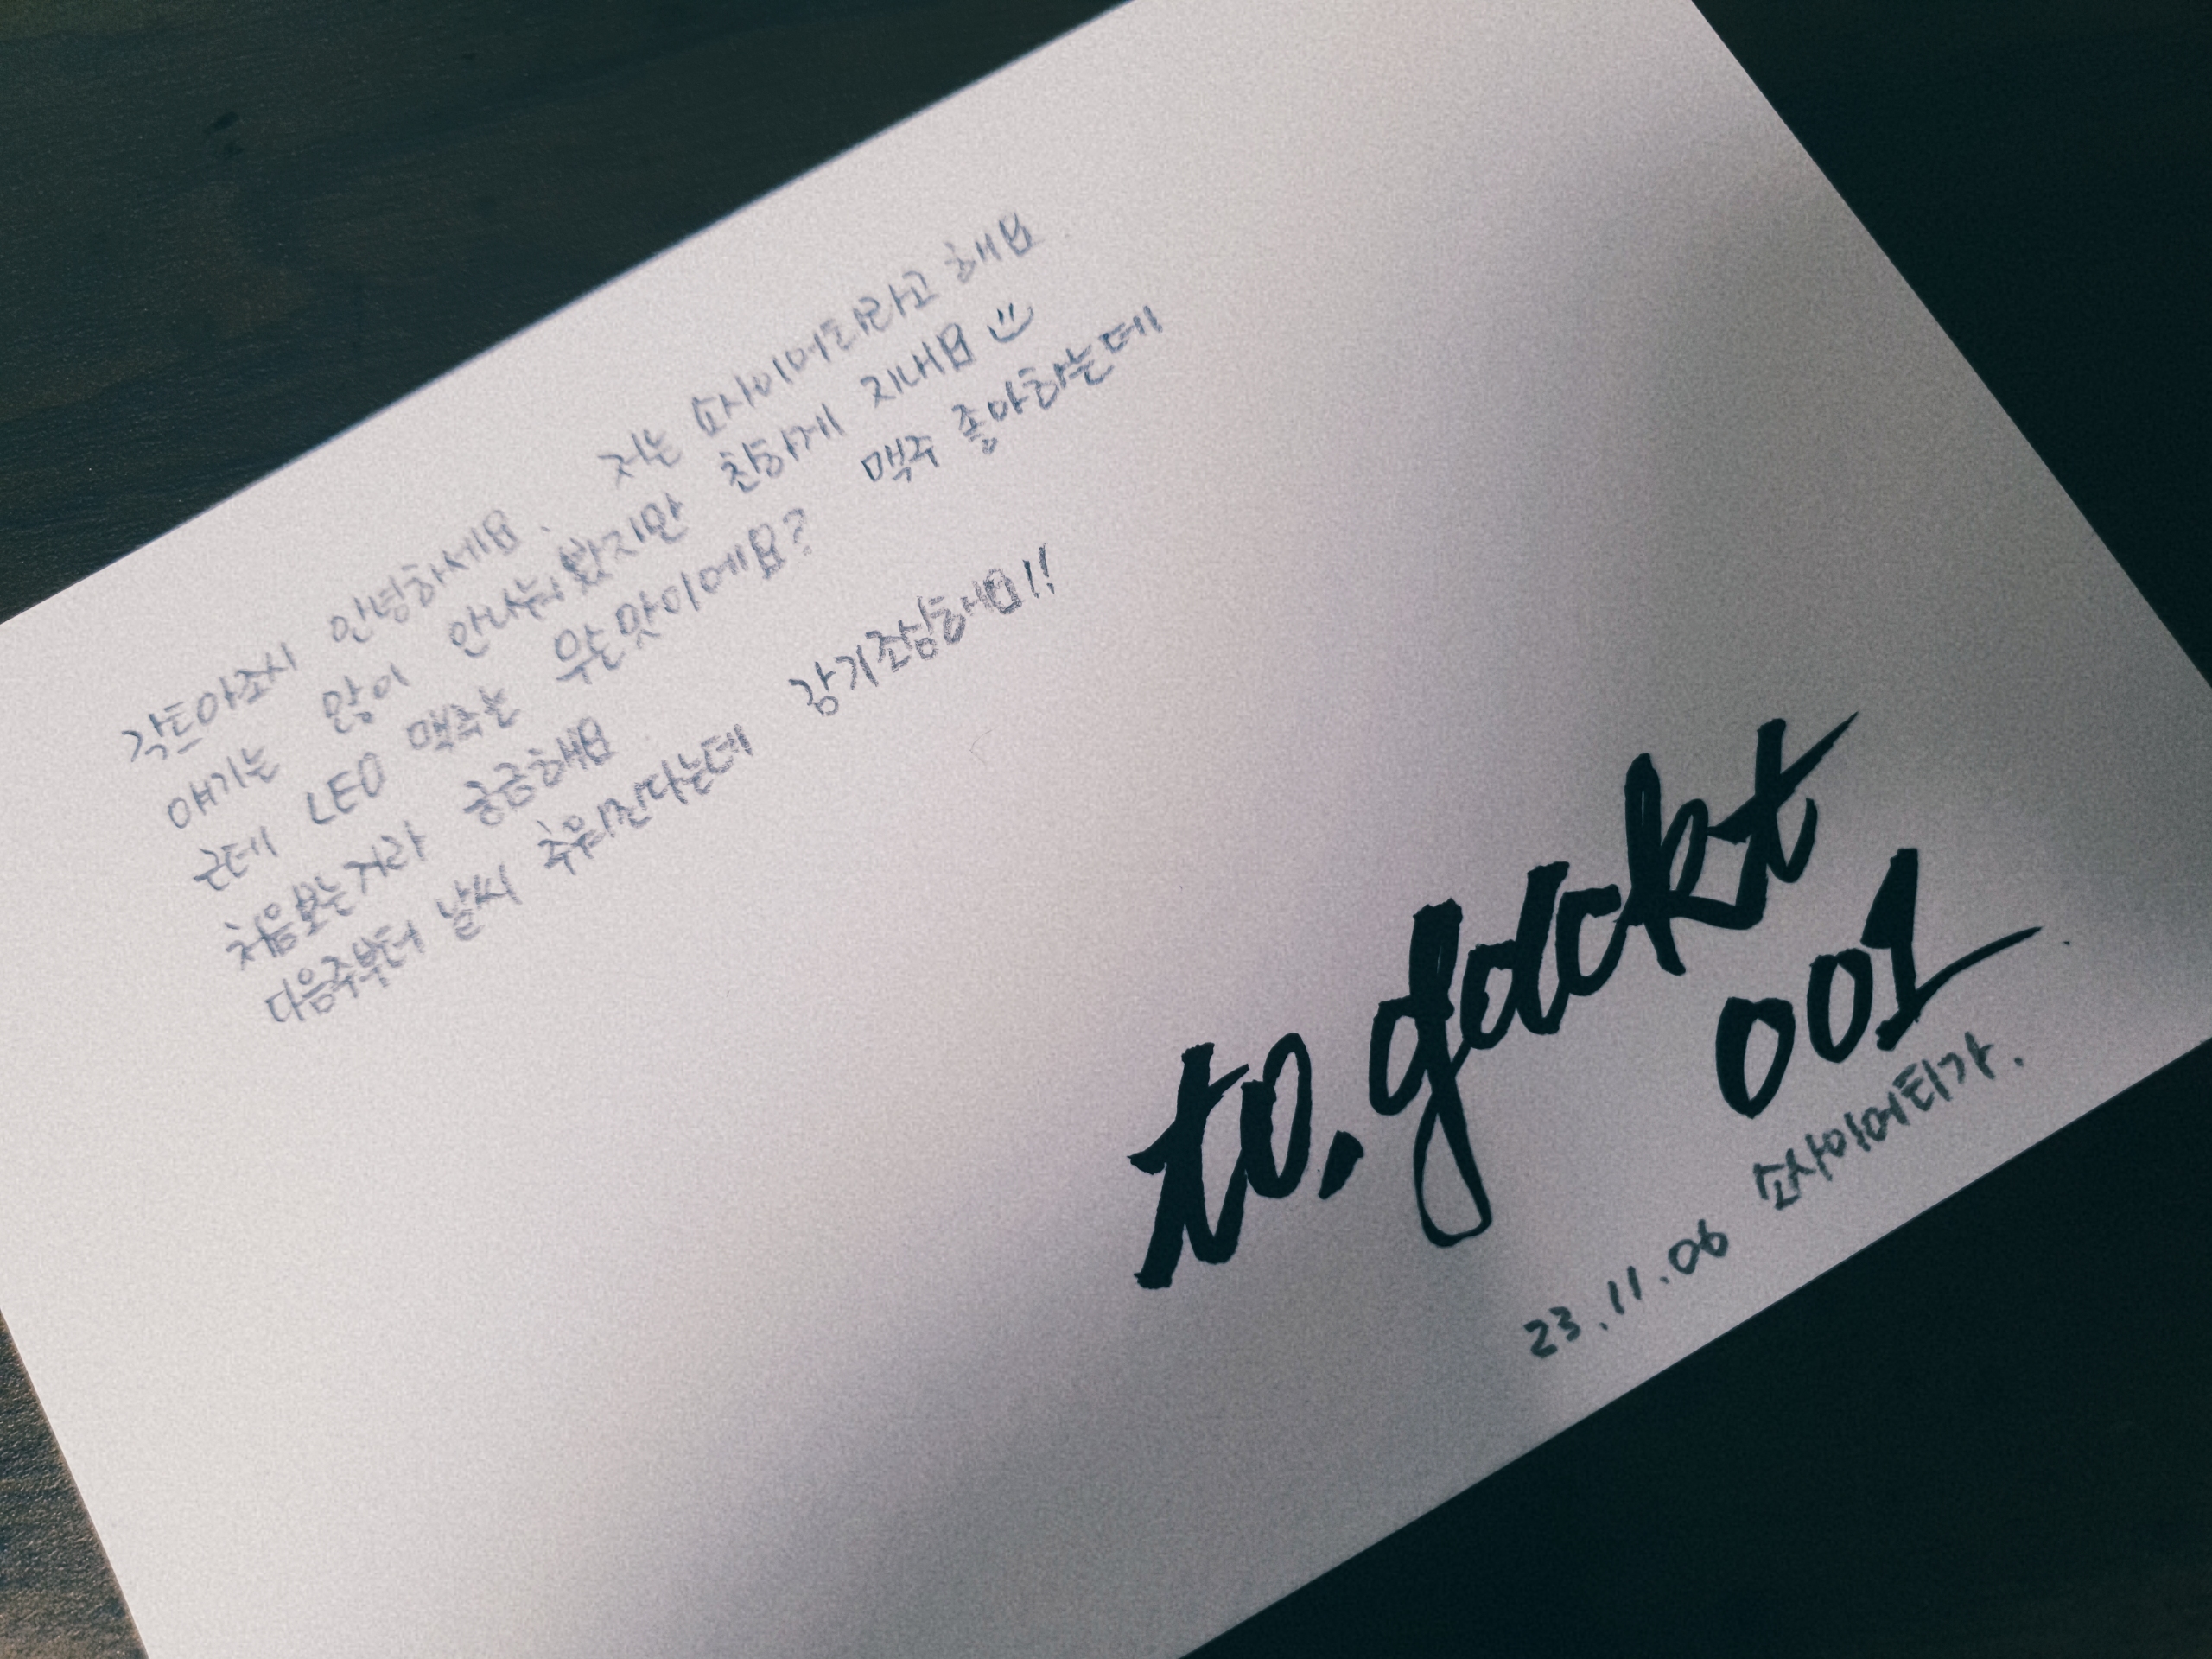 각트아조시 안녕하세요. 저는 쇼사이어티라고 해요.
얘기는 많이 안나눠봤지만 친하게 지내요
근데 LEO 맥주는 무슨맛이에요? 맥주 좋아하는데
처음보는거라 궁금해요
다음주부터 날씨 추워진다는데 감기조심해요!!
to. gackt
001
23.11.06 쇼사이어티가.